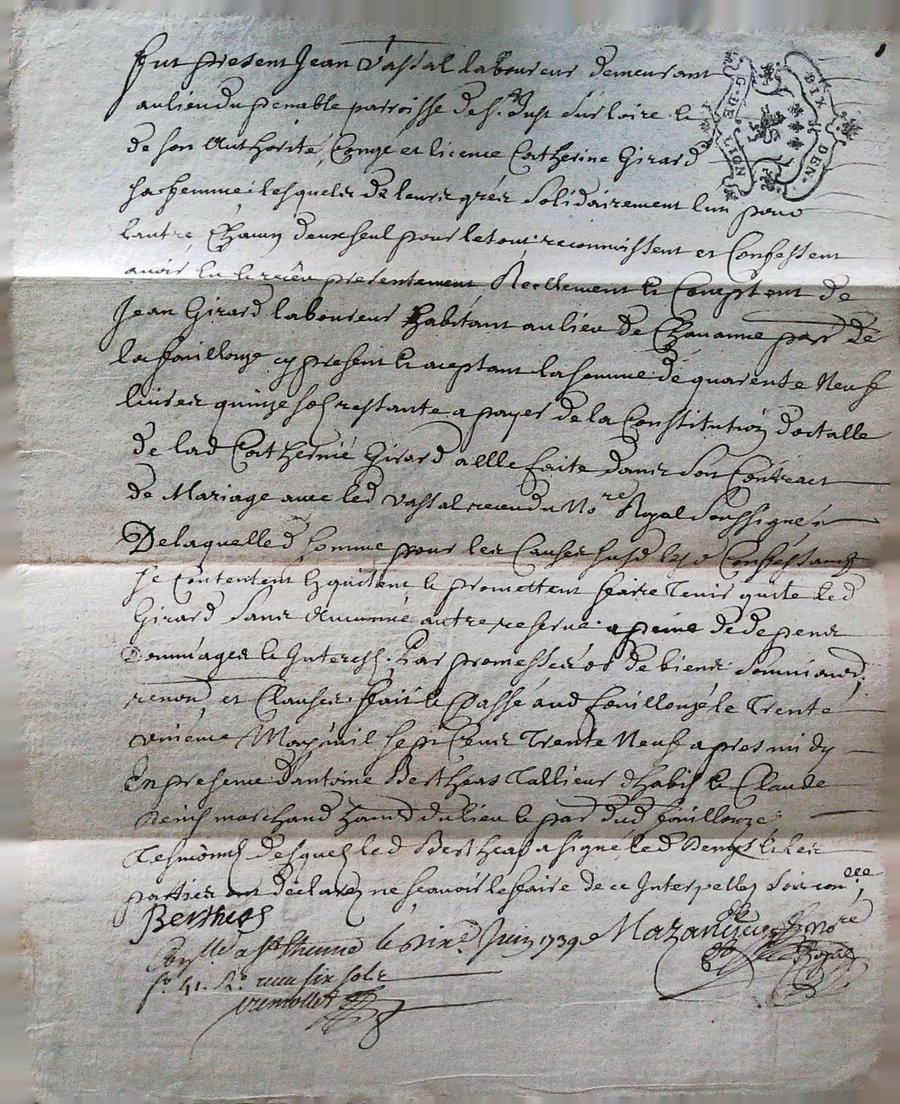 Fut present Jean Vassal laboureur demeurant
au lieu du penable parroisse de St Just sur loire et
de son Authorité, Congé et licence Catherine Girard
sa femme lesquels de leurs gréz solidairement l'un pour
l'autre Chacun deux seul pour le tout reconnoissent et Confessent
avoir eu et receu presentement Réellement et Comptent de
Jean Girard laboureur habitant au lieu de Chavanne parr de
la fouillouze cy present et aceptant la somme de quarente Neuf
livres quinze sols restante a payer de la Constitution dotalle
de lad Catherine Girard a elle faite dans son Contract
de Mariage avec led Vassal receu du No.re Royal soussigné
De laquelle d somme pour les Causes susd lesd Confessants
se Contentent et quittent et promettent faire tenir quite led
Girard sans aucunne autre reserve a peine de depens
Dommages et Interests. Par promesses de biens soumiond
renond et Clauses fait et Passé aud fouillouze le trente
unieme May mil sept Cens trente Neuf apres midy
En presence d'antoine Berthéas tallieur d'habis et Claude
Denis marchand du lieu et par dud fouillouze
tesmoins desquels led Bertheas a signé led Denys et les
parties ont declarez ne scavoir le faire de ce Interpellez
Bertheas
a St Etienne le Juin 1739
Mazancieux No.re Royal
fo 41. Ro receu six sols